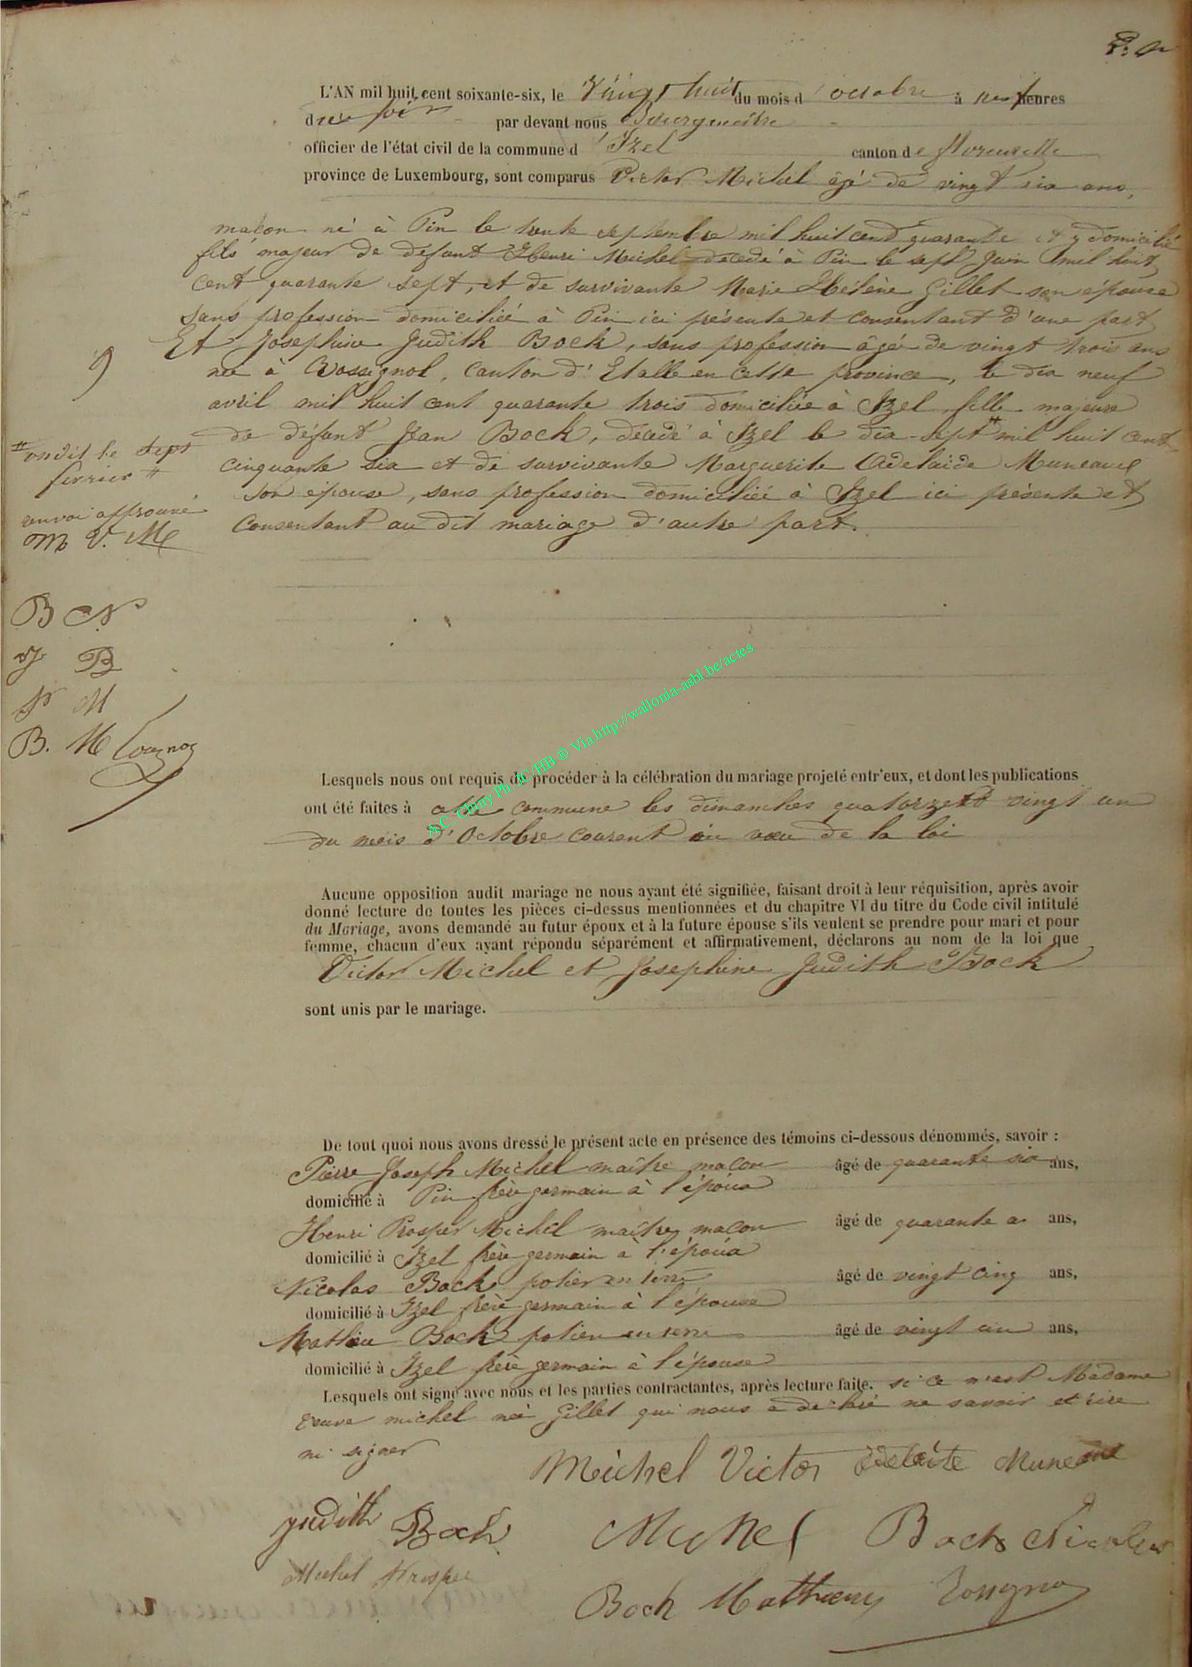 L'AN mil huit cent soixante-six, le Vingt huit du mois d'octobre à neuf heures
du soir par devant nous Bourgmestre
officier de l'état civil de la commune d'Izel canton de Florenville
province de Luxembourg, sont comparus Victor Michel âgé de vingt six ans,
maçon né à Pin le trente septembre mil huit cent quarante et y domicilié
fils majeur de défunt Henri Michel décédé à Pin le sept Juin mil huit
cent quarante sept, et de survivante Marie Hélène Gillet son épouse
sans profession domiciliée à Pin ici présente et consentant d'une part
Et Josephine Judith Bock, sans profession âgée de vingt trois ans
née à Rossignol, canton d'Etalle en cette province, le dix neuf
avril mil huit cent quarante trois domiciliée à Izel fille majeure
de défunt Jean Bock, décédé à Izel le dix-sept # mil huit cent
cinquante six et de survivante Marguerite Adelaïde Muneaux
son épouse, sans profession domiciliée à Izel ici présente et
consentant au dit mariage d'autre part.
9
# on dit le sept
février #
renvoi approuvé
M V. M
B N
J B
P M
B. M Rossignon
Lesquels nous ont requis de procéder à la célébration du mariage projeté entr'eux, et dont les publications
ont été faites à cette commune les dimanches quatorze et vingt un
du mois d'Octobre courent au vœu de la loi
Aucune opposition audit mariage ne nous ayant été signifiée, faisant droit à leur réquisition, après avoir
donné lecture de toutes les pièces ci-dessus mentionnées et du chapitre VI du titre du Code civil intitulé
du Mariage, avons demandé au futur époux et à la future épouse s'ils veulent se prendre pour mari et pour
femme, chacun d'eux ayant répondu séparément et affirmativement, déclarons au nom de la loi que
Victor Michel et Josephine Judith Bock
sont unis par le mariage.
De tout quoi nous avons dressé le présent acte en présence des témoins ci-dessous dénommés, savoir :
Pierre Joseph Michel maître maçon âgé de quarante six ans,
domicilié à Pin frère germain à l'époux
Henri Prosper Michel maître maçon âgé de quarante ans,
domicilié à Izel frère germain à l'époux
Nicolas Bock potier en terre âgé de vingt cinq ans,
domicilié à Izel frère germain à l'épouse
Mathieu Bock potier en terre âgé de vingt un ans,
domicilié à Izel frère germain à l'épouse
Lesquels ont signé avec nous et les parties contractantes, après lecture faite. si ce n'est Madame
veuve michel née Gillet qui nous a déclaré ne savoir écrire
ni signer
Michel Victor Adelaïte Muneaux
Judith Bock Michel Bock Nicolas
Michel Prosper
Bock Mathieu Rossignon
A.C. Chiny Ph. JC/HB ® Via http://wallonia-asbl.be/actes